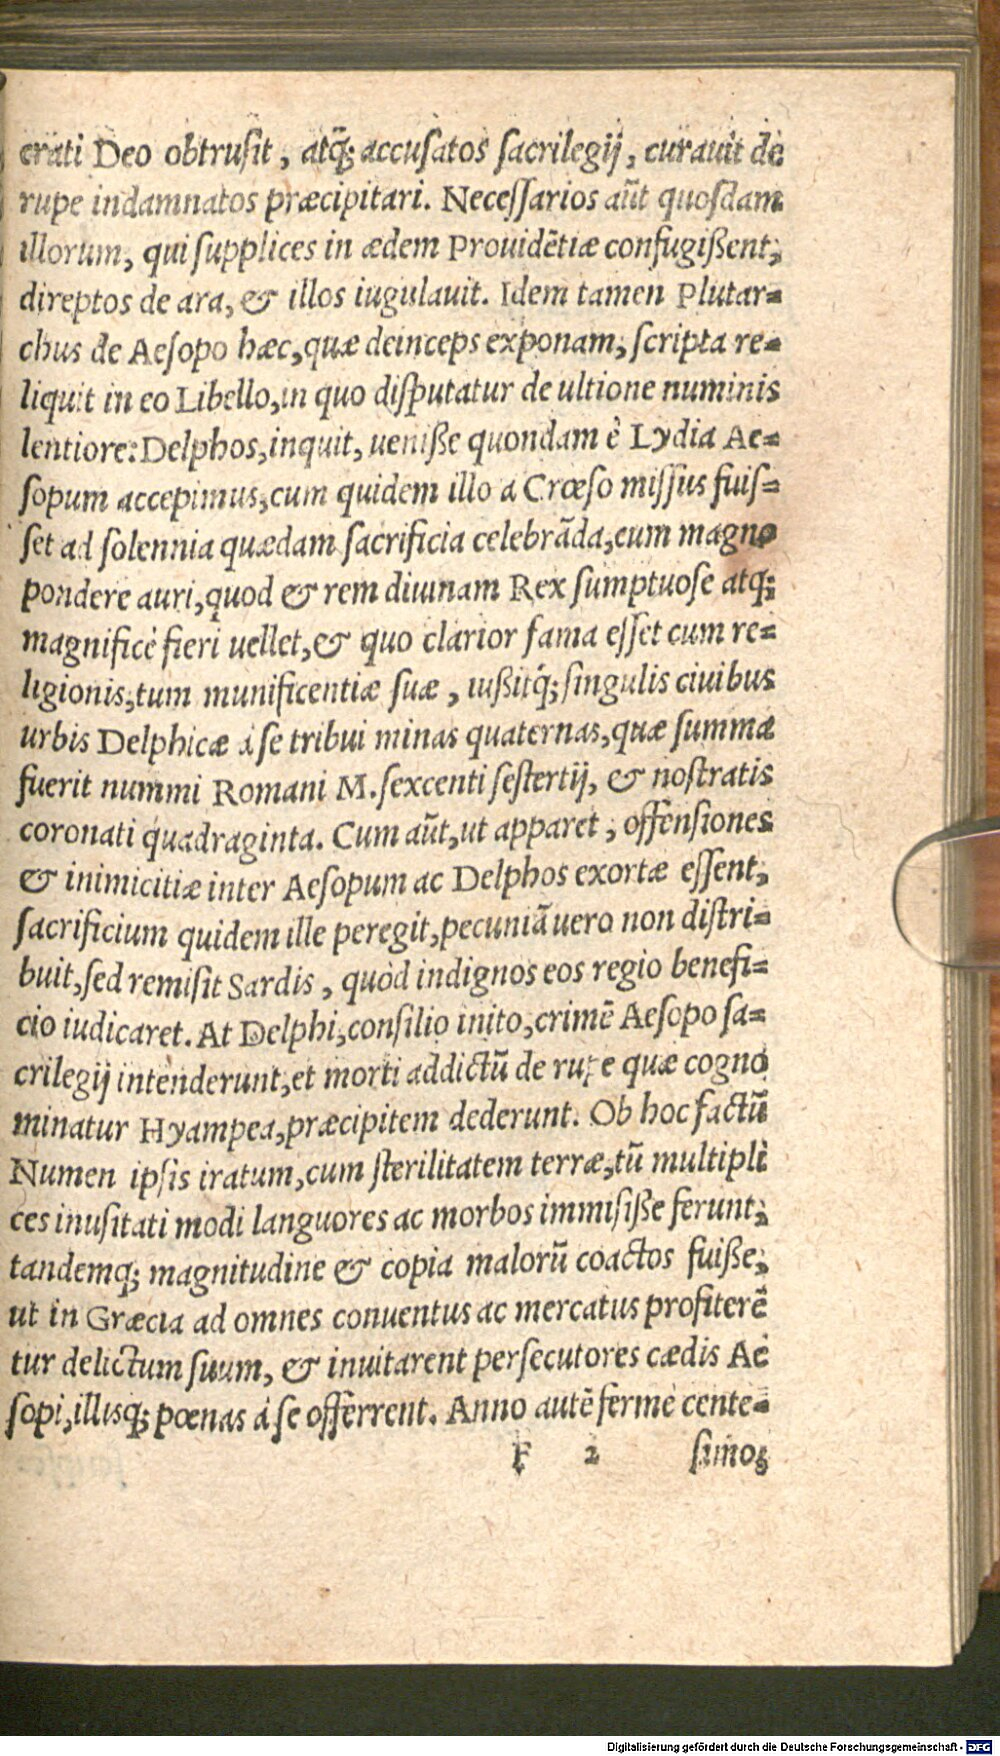 erati Deo obtrusit, atq́; accusatos sacrilegij, curauit de
rupe indamnatos præcipitari. Necessarios aūt quosdam
illorum, qui supplices in ædem Prouidētiæ confugißent,
direptos de ara, & illos iugulauit. Idem tamen Plutar-
chus de Aesopo hæc, quæ deinceps exponam, scripta re-
liquit in eo Libello, in quo disputatur de ultione numinis
lentiore: Delphos, inquit, ueniße quondam è Lydia Ae-
sopum accepimus, cum quidem illo a Crœso missus fuis-
set ad solennia quædam sacrificia celebrāda, cum magno
pondere auri, quod & rem diuinam Rex sumptuose atq;
magnificè fieri uellet, & quo clarior fama esset cum re-
ligionis, tum munificentiæ suæ, iußitq́; singulis ciuibus
urbis Delphicæ à se tribui minas quaternas, quæ summa
fuerit nummi Romani M. sexcenti sestertij, & nostratis
coronati quadraginta. Cum aūt, ut apparet, offensiones
& inimicitiæ inter Aesopum ac Delphos exortæ essent,
sacrificium quidem ille peregit, pecuniā uero non distri-
buit, sed remisit Sardis, quòd indignos eos regio benefi-
cio iudicaret. At Delphi, consilio inito, crimē Aesopo sa-
crilegij intenderunt, et morti addictū de rupe quæ cogno
minatur Hyampea, præcipitem dederunt. Ob hoc factū
Numen ipsis iratum, cum sterilitatem terræ, tū multipli
ces inusitati modi languores ac morbos immisiße ferunt,
tandemq; magnitudine & copia malorū coactos fuiße,
ut in Græcia ad omnes conuentus ac mercatus profiterē
tur delictum suum, & inuitarent persecutores cædis Ae
sopi, illisq; pœnas à se offerrent. Anno autē fermè cente-
F 2 simo,
Digitalisierung gefördert durch die Deutsche Forschungsgemeinschaft - DFG